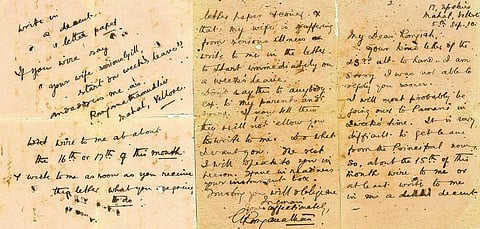 17, Yookies
Mahal, Vellore
5th Sep. 10
My Dear Ranjiah,
your kind letter of the
28th ult. to hand. I am
sorry I was not able to
reply you sooner.
I will most probably be
going over to Parvani's in
2 weeks time. It is very
difficult to get leave
from the Principal now.
So, about the 15th of this
month wire to me or
at least write to me
in me a decent
letter paper & cover &
that my wife is suffering
from serious illness
write to me in the letter
to start immediately on
a week's leave.
Don't say this to anybody
ex. to my parents and
yours. If you tell them
they will not allow you
to write to me. Do what
I want you. The rest
I will speak to you in
person. I
your instrument box.
Trusting you will oblige me
I remain
yours affectionately,
Ranganathan
write in
a decent
letter paper
If you wire say
"your wife seriously ill,
start on week's leave"
address in me as.
Ranganathan
Mahal, Vellore.
Wait wire to me at about
the 16th or 17th of this month
& write to me as soon as you receive
this letter what you are going
to do